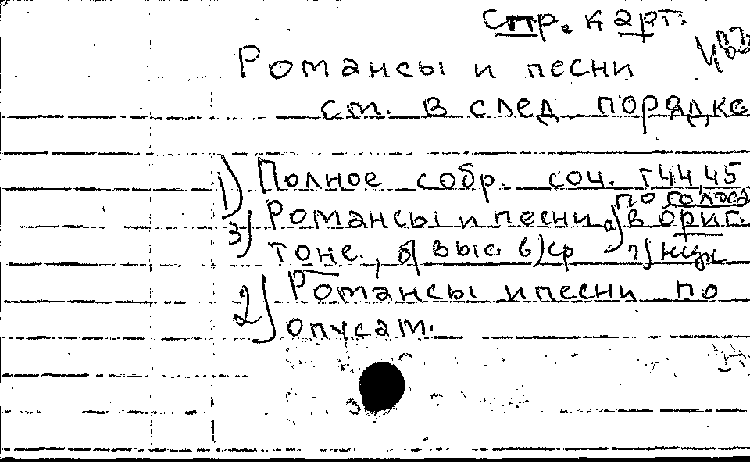 стр. карт.
Романсы и песни
см. в след порядке
1) Полное собр. соч. т 44, 45
по голоса
3) Романсы и песни а) в ориг.
тоне., б) выс. в) ср г) низк
2) Романсы и песни по
опусам.